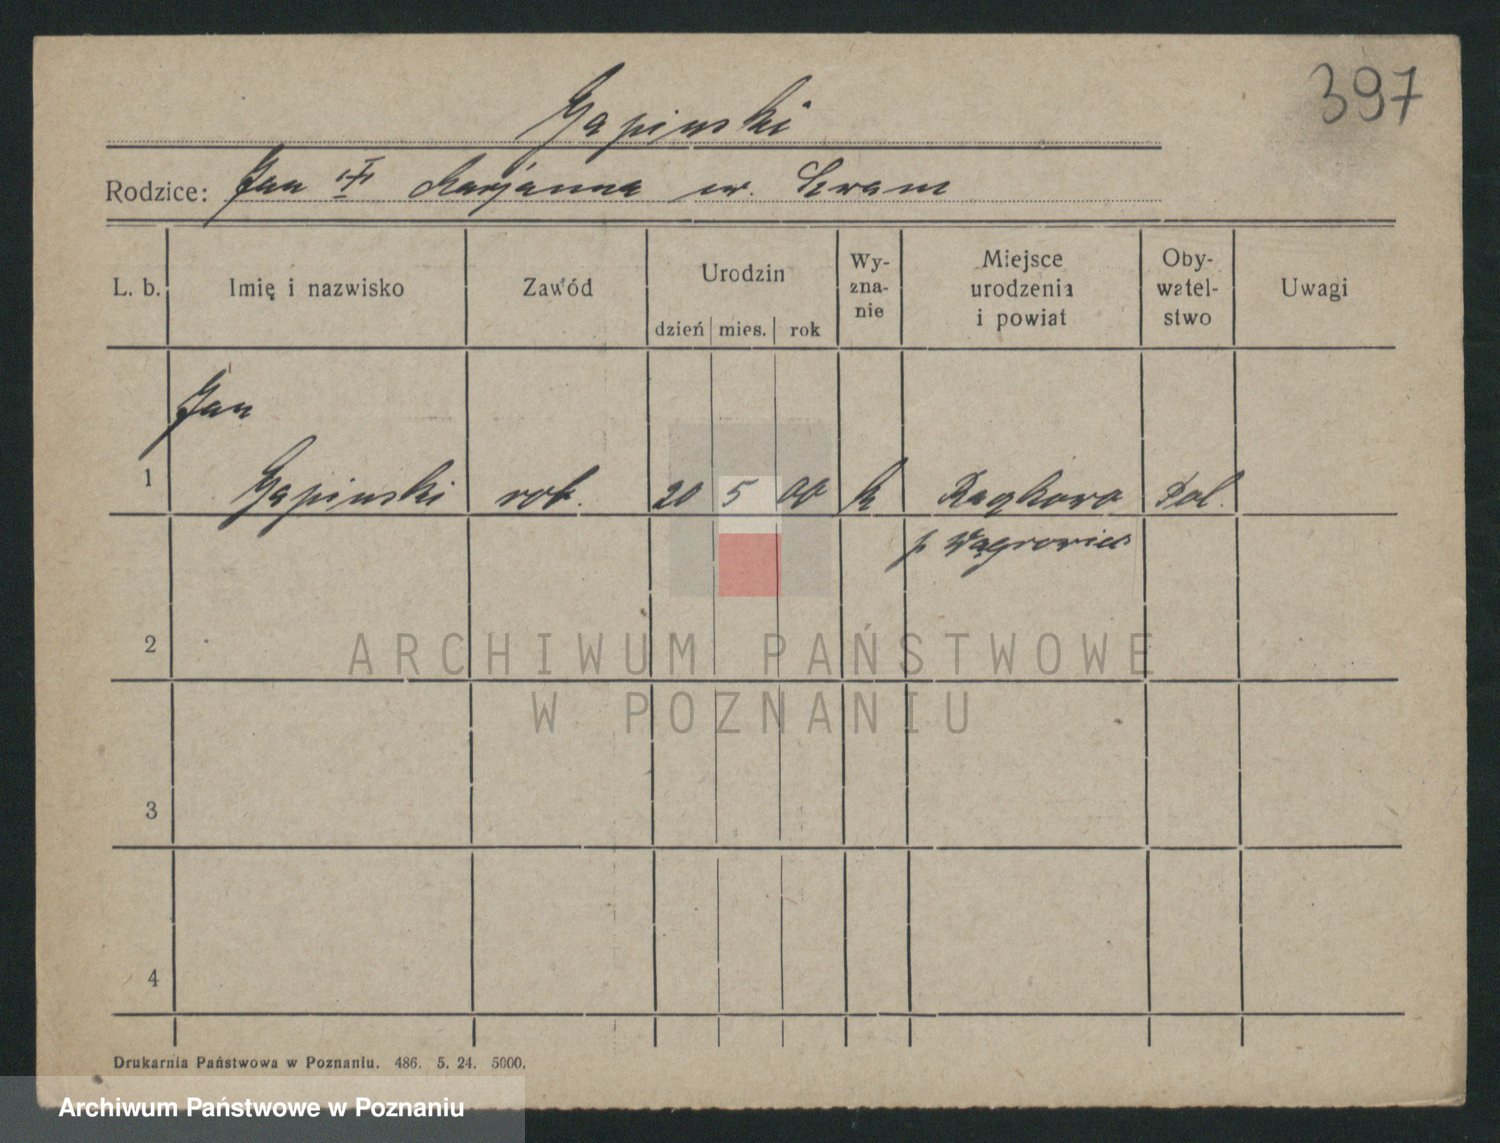 397
Gapinski
Rodzice: Jan Marjanna
L. b. Imię i nazwisko Zawód Urodzin dzień mies. rok Wy-zna-nie Miejsce urodzenia i powiat Oby-watel-stwo Uwagi
Jan
1 Gapinski rob. 20 5 00 k Pol.
p Wągrowiec
2
ARCHIWUM PAŃSTWOWE
W POZNANIU
3
4
Drukarnia Państwowa w Poznaniu. 486. 5. 24. 5000.
Archiwum Państwowe w Poznaniu